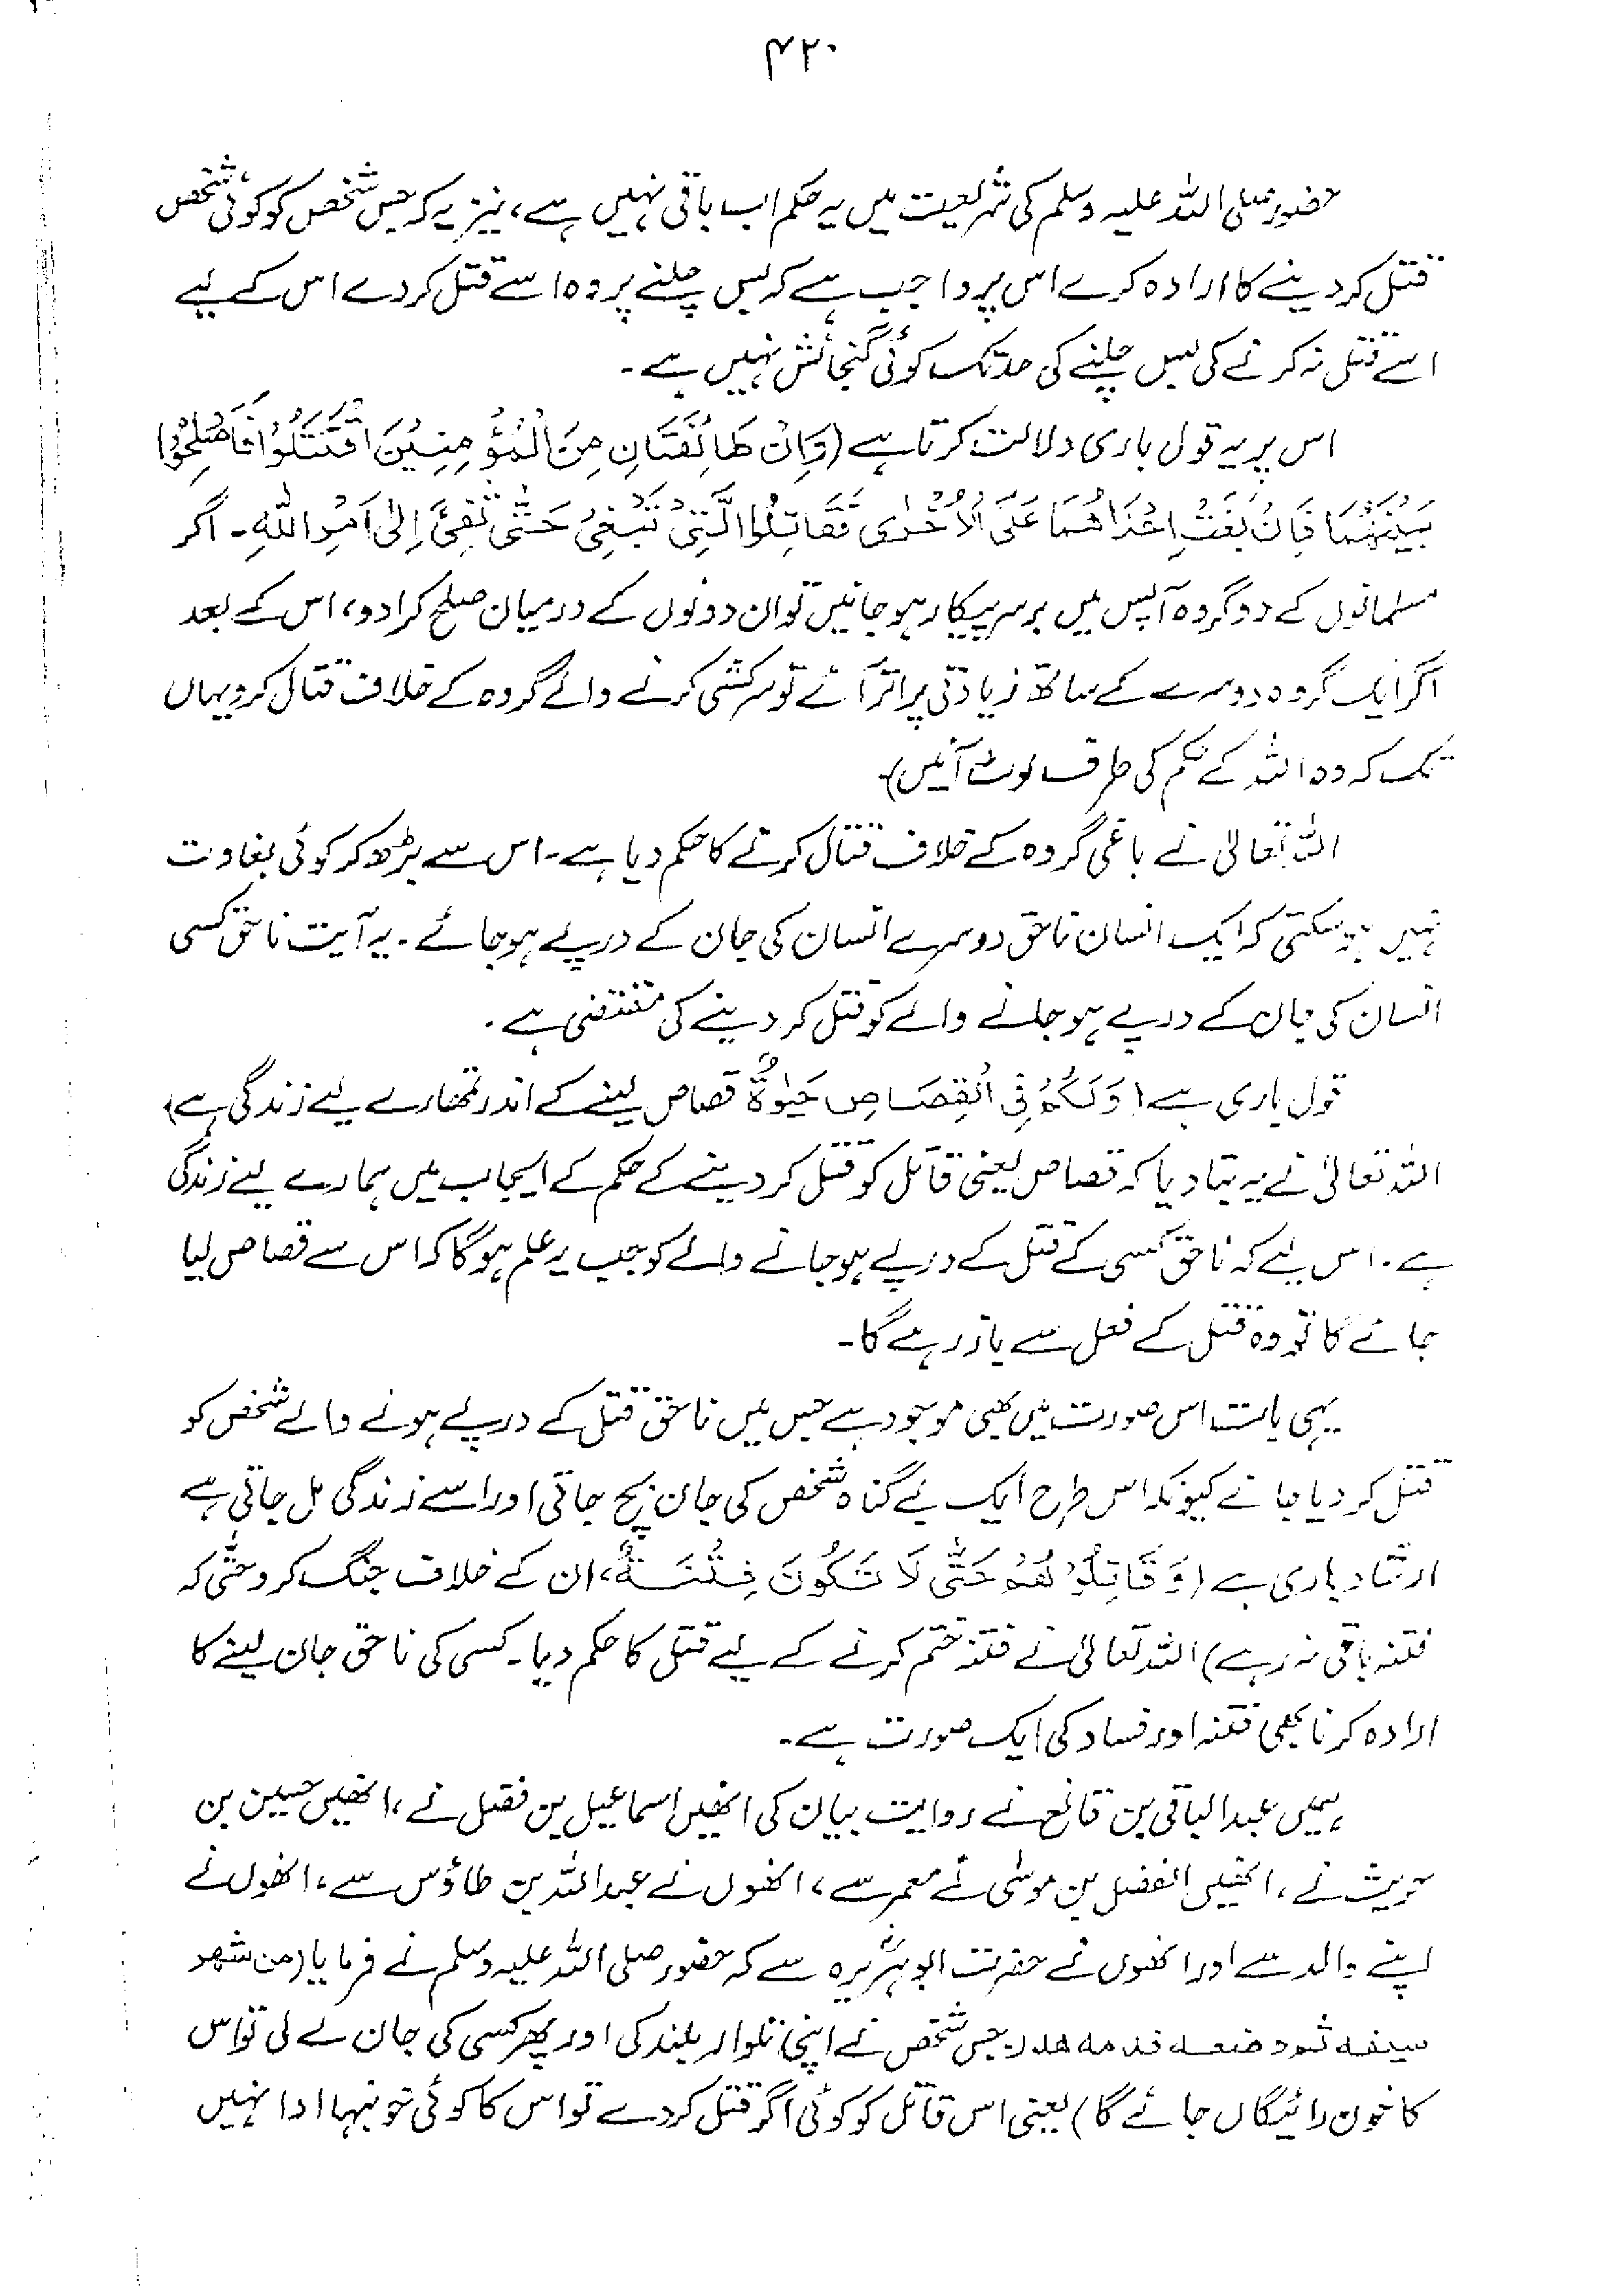 ۴۲۰
حضور صلی اللہ علیہ وسلم کی شریعت میں یہ حکم اب باقی نہیں ہے، نیز یہ کہ جس شخص کو کوئی شخص
قتل کر دینے کا ارادہ کرے اس پر واجب ہے کہ بس چلنے پر وہ اسے قتل کر دے اس کے لیے
اسے قتل نہ کرنے کی بس چلنے کی حد تک کوئی گنجائش نہیں ہے۔
اس پر یہ قول باری دلالت کرتا ہے (وَاِنْ طَائِفَتَانِ مِنَ الْمُؤْمِنِيْنَ اقْتَتَلُوْا فَاَصْلِحُوْا
بَيْنَهُمَا فَاِنْ بَغَتْ اِحْدَاهُمَا عَلَى الْاُخْرٰى فَقَاتِلُوا الَّتِىْ تَبْغِىْ حَتّٰى تَفِىْٓءَ اِلٰى اَمْرِ اللّٰهِ۔ اگر
مسلمانوں کے دو گروہ آپس میں برسرپیکار ہو جائیں تو ان دونوں کے درمیان صلح کرا دو، اس کے بعد
اگر ایک گروہ دوسرے کے ساتھ زیادتی پر اتر آئے تو سرکشی کرنے والے گروہ کے خلاف قتال کرو یہاں
تک کہ وہ اللہ کے حکم کی طرف لوٹ آئیں)
اللہ تعالیٰ نے باغی گروہ کے خلاف قتال کرنے کا حکم دیا ہے۔ اس سے بڑھ کر کوئی بغاوت
نہیں ہو سکتی کہ ایک انسان ناحق دوسرے انسان کی جان کے درپے ہو جائے۔ یہ آیت ناحق کسی
انسان کی جان کے درپے ہو جانے والے کو قتل کر دینے کی مقتضی ہے۔
قول باری ہے (وَلَكُمْ فِى الْقِصَاصِ حَيٰوةٌ قصاص لینے کے اندر تمھارے لیے زندگی ہے)
اللہ تعالیٰ نے یہ بتا دیا کہ قصاص یعنی قاتل کو قتل کر دینے کے حکم کے ایجاب میں ہمارے لیے زندگی
ہے۔ اس لیے کہ ناحق کسی کے قتل کے درپے ہو جانے والے کو جب یہ علم ہوگا کہ اس سے قصاص لیا
جائے گا تو وہ قتل کے فعل سے باز رہے گا۔
یہی بات اس صورت میں بھی موجود ہے جس میں ناحق قتل کے درپے ہونے والے شخص کو
قتل کر دیا جائے کیونکہ اس طرح ایک بے گناہ شخص کی جان بچ جاتی اور اسے زندگی مل جاتی ہے
ارشاد باری ہے (وَقَاتِلُوْهُمْ حَتّٰى لَا تَكُوْنَ فِتْنَةٌ، ان کے خلاف جنگ کرو حتّٰی کہ
فتنہ باقی نہ رہے) اللہ تعالیٰ نے فتنہ ختم کرنے کے لیے قتل کا حکم دیا۔ کسی کی ناحق جان لینے کا
ارادہ کرنا بھی فتنہ اور فساد کی ایک صورت ہے۔
ہمیں عبدالباقی بن قانع نے روایت بیان کی انھیں اسماعیل بن فضل نے، انھیں حسین بن
حریث نے، انھیں الفضل بن موسیٰ نے معمر سے، انھوں نے عبداللہ بن طاؤس سے، انھوں نے
اپنے والد سے اور انھوں نے حضرت ابوہریرہؓ سے کہ حضور صلی اللہ علیہ وسلم نے فرمایا (من شهر
سيفه ثم وضعه فدمه هدر جس شخص نے اپنی تلوار بلند کی اور پھر کسی کی جان لے لی تو اس
کا خون رائیگاں جائے گا) یعنی اس قاتل کو کوئی اگر قتل کر دے تو اس کا کوئی خونبہا ادا نہیں